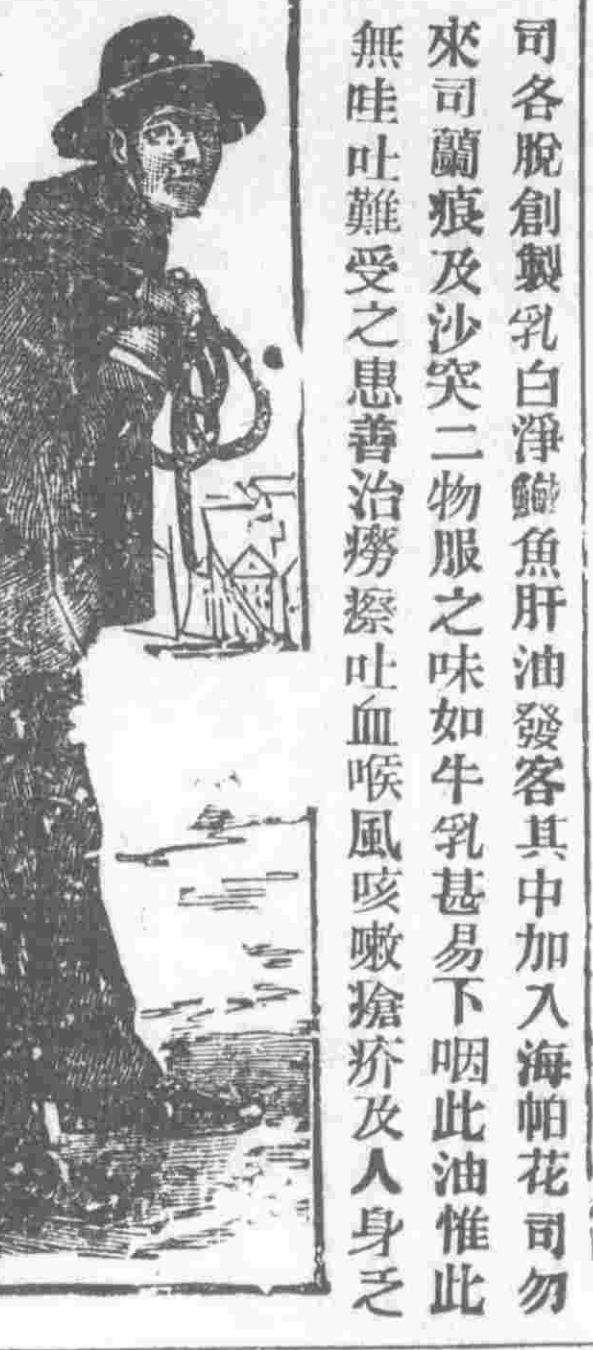 司各脫創製乳白淨魚肝油發客其中加入海帕花司勿
來司蘭痕及沙突二物服之味如牛乳甚易下咽此油惟此
無哇吐難受之患善治癆瘵吐血喉風咳嗽瘡疥及人身乏